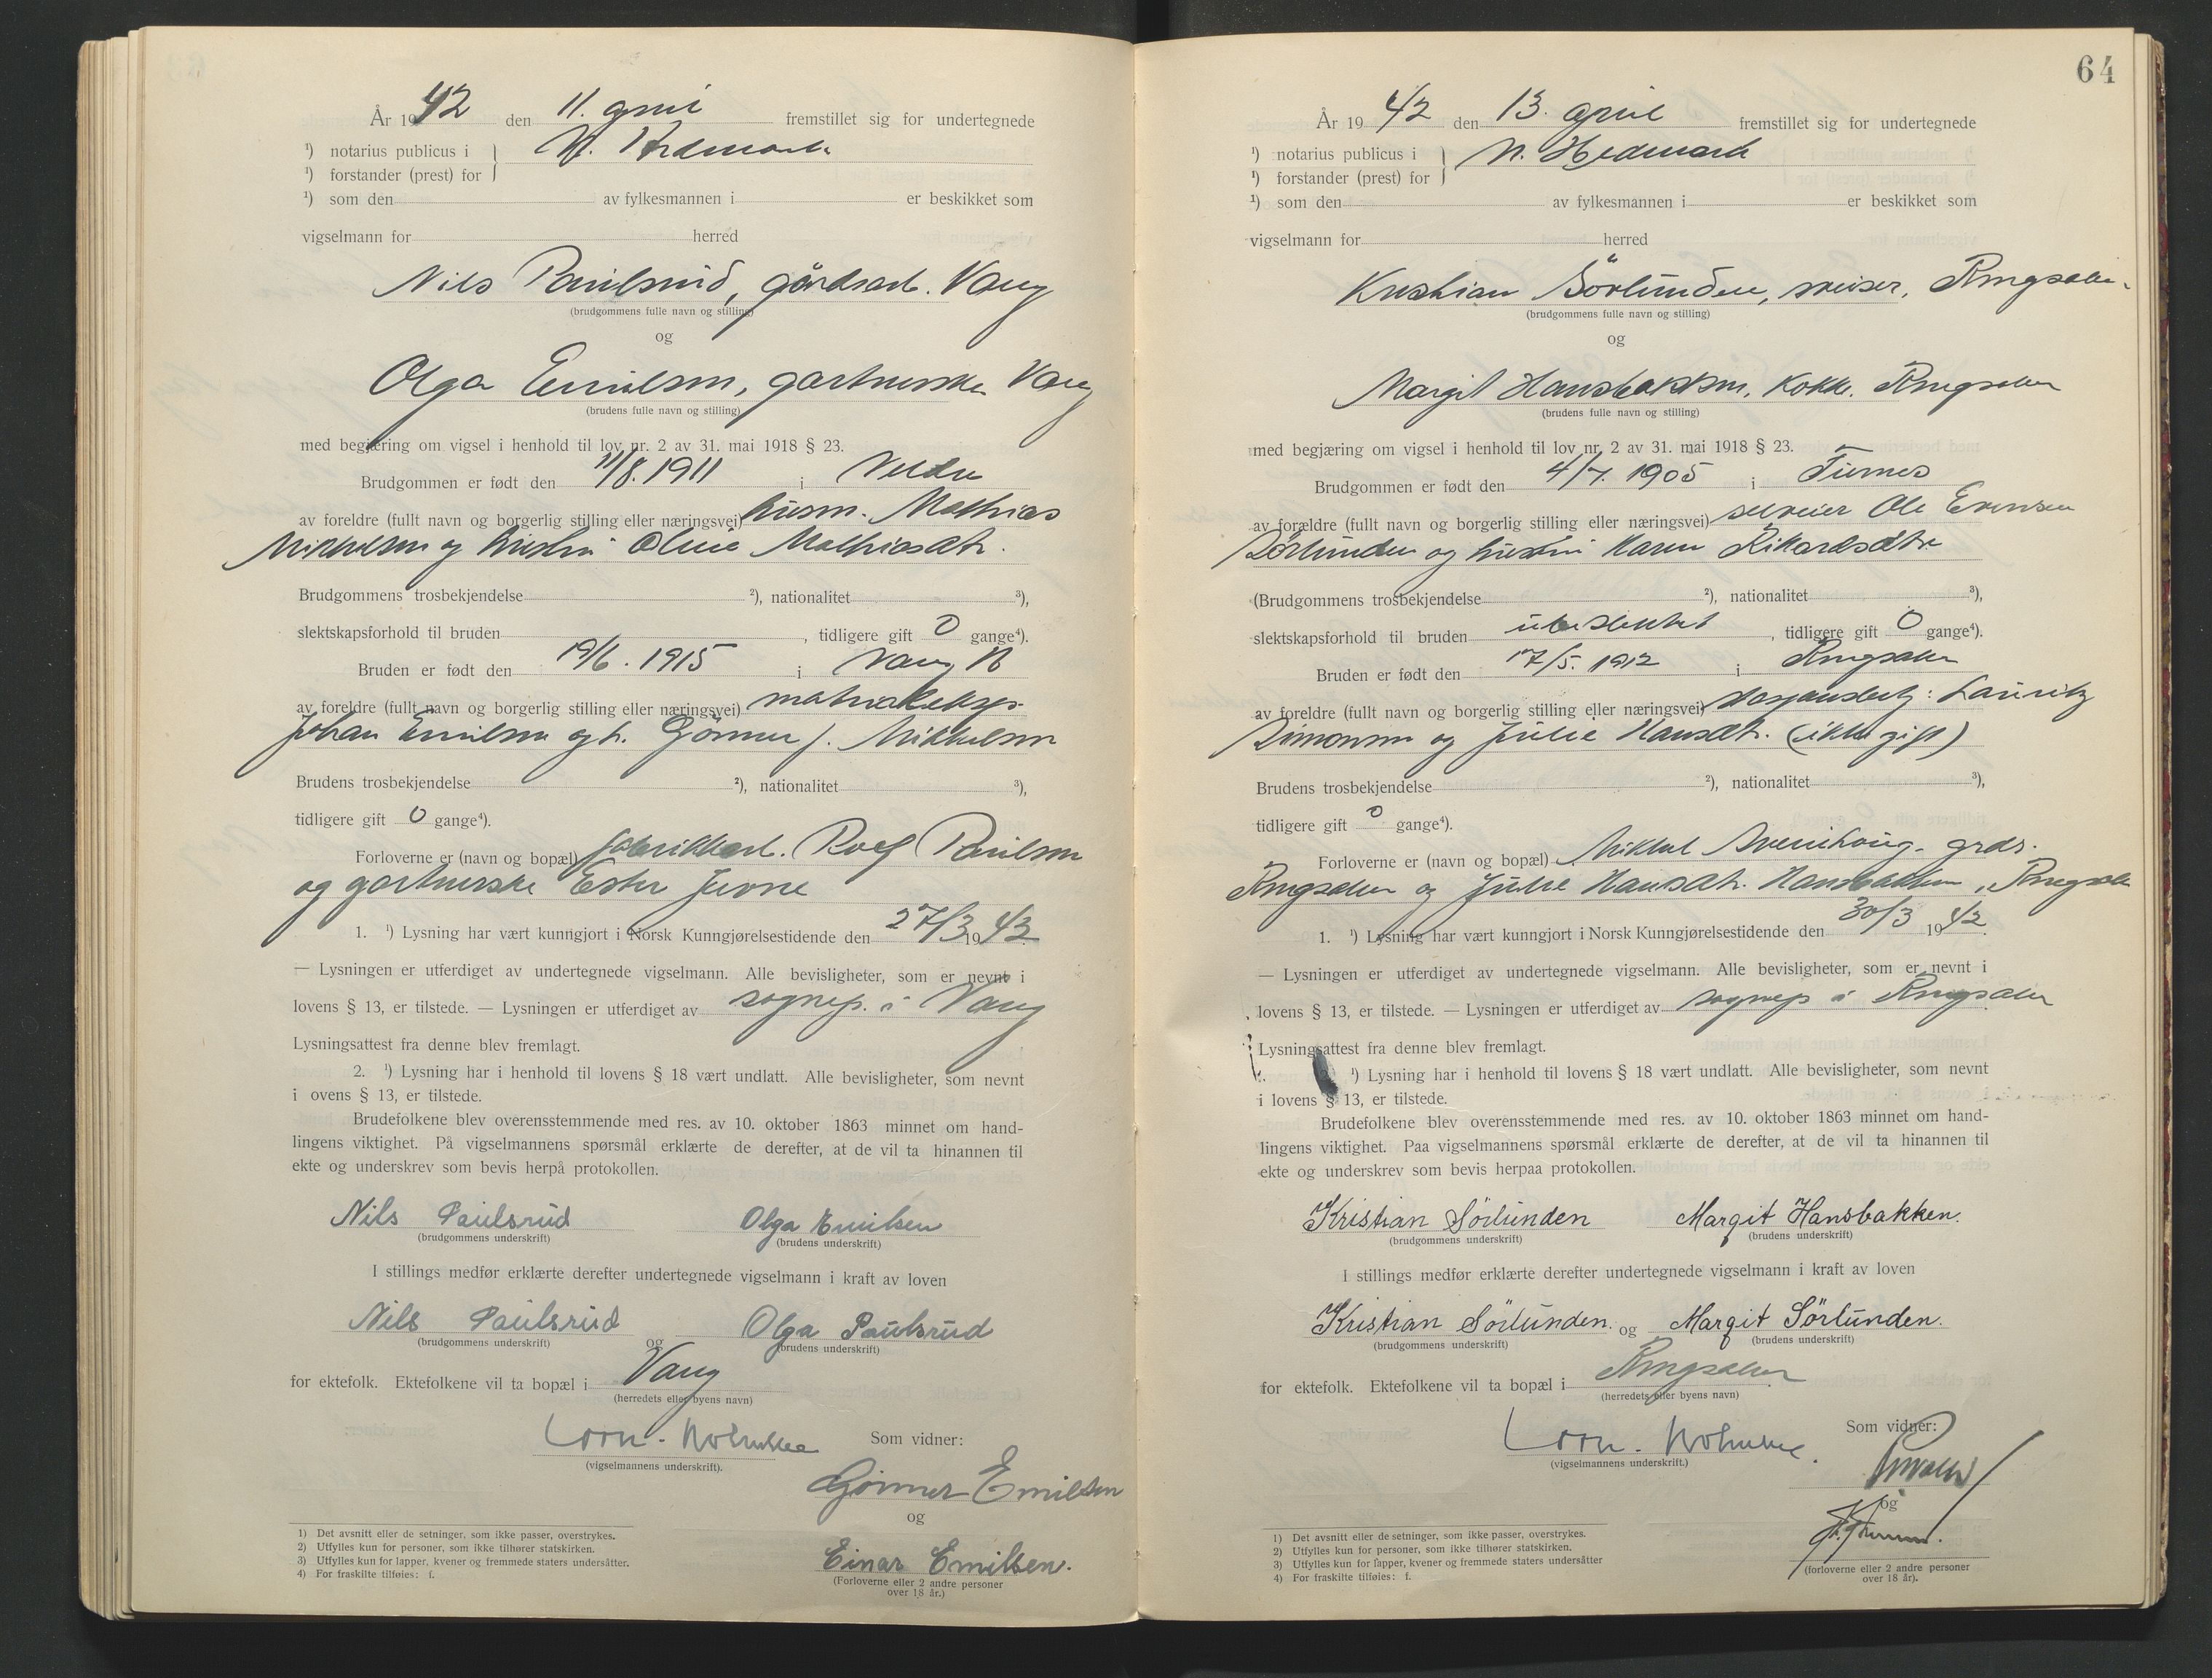 År 1942 den 11. april fremstillet sig for undertegnede
¹) notarius publicus i } N. Hedmark
¹) forstander (prest) for
¹) som den av fylkesmannen i er beskikket som
vigselmann for herred
Nils Paulsrud, gårdsarb. Vang
(brudgommens fulle navn og stilling)
og
Olga Emilsen, gartnerske Vang
(brudens fulle navn og stilling)
med begjæring om vigsel i henhold til lov nr. 2 av 31. mai 1918 § 23.
Brudgommen er født den 11/8. 1911 i Veldre
av foreldre (fullt navn og borgerlig stilling eller næringsvei) husm. Mathias
Mikkelsen og hustru Oline Mathiasdtr.
Brudgommens trosbekjendelse ²), nationalitet ³),
slektskapsforhold til bruden , tidligere gift 0 gange⁴).
Bruden er født den 19/6. 1915 i Vang H
av foreldre (fullt navn og borgerlig stilling eller næringsvei)
Johan Emilsen og h. Gønner f. Mikkelsen
Brudens trosbekjendelse ²), nationalitet ³),
tidligere gift 0 gange⁴).
Forloverne er (navn og bopæl) fabrikkarb. Rolf Paulsen
og gartnerske Ester Jevne
1. ¹) Lysning har vært kunngjort i Norsk Kunngjørelsestidende den 27/3 1942
— Lysningen er utferdiget av undertegnede vigselmann. Alle bevisligheter, som er nevnt i
lovens § 13, er tilstede. — Lysningen er utferdiget av sognep. i Vang
Lysningsattest fra denne blev fremlagt.
2. ¹) Lysning har i henhold til lovens § 18 vært undlatt. Alle bevisligheter, som nevnt
i ovens § 13, er tilstede.
Brudefolkene blev overensstemmende med res. av 10. oktober 1863 minnet om hand-
lingens viktighet. På vigselmannens spørsmål erklærte de derefter, at de vil ta hinannen til
ekte og underskrev som bevis herpå protokollen.
Nils Paulsrud Olga Emilsen
(brudgommens underskrift) (brudens underskrift)
I stillings medfør erklærte derefter undertegnede vigselmann i kraft av loven
Nils Paulsrud og Olga Paulsrud
(brudgommens underskrift) (brudens underskrift)
for ektefolk. Ektefolkene vil ta bopæl i Vang
(herredets eller byens navn)
Som vidner:
(vigselmannens underskrift).
Gønner Emilsen
og
Einar Emilsen.
(Forloverne eller 2 andre personer
over 18 år.)
1) Det avsnitt eller de setninger, som ikke passer, overstrykes.
2) Utfylles kun for personer, som ikke tilhører statskirken.
3) Utfylles kun for lapper, kvener og fremmede staters undersåtter.
4) For fraskilte tilføies: f.
64
År 1942 den 13. april fremstillet sig for undertegnede
¹) notarius publicus i } N. Hedmark
¹) forstander (prest) for
¹) som den av fylkesmannen i er beskikket som
vigselmann for herred
Kristian Sörlunden, sveiser, Ringsaker
(brudgommens fulle navn og stilling)
og
Margit Hansbakken, kokke. Ringsaker
(brudens fulle navn og stilling)
med begjæring om vigsel i henhold til lov nr. 2 av 31. mai 1918 § 23.
Brudgommen er født den 4/7. 1905 i Furnes
av forældre (fullt navn og borgerlig stilling eller næringsvei) selveier Ole Evensen
Sörlunden og hustru Karen Rikardsdtr
(Brudgommens trosbekjendelse ²), nationalitet ³),
slektskapsforhold til bruden ubeslektet , tidligere gift 0 gange⁴).
Bruden er født den 17/5. 1912 i Ringsaker
av foreldre (fullt navn og borgerlig stilling eller næringsvei) Lauritz
Simonsen og Julie Hansdtr. (ikke gift)
Brudens trosbekjendelse ²), nationalitet ³),
tidligere gift 0 gange⁴).
Forloverne er (navn og bopæl) Mikkel
Ringsaker og Julie Hansdtr. Hansbakken, Ringsaker
1. ¹) Lysning har vært kunngjort i Norsk Kunngjørelsestidende den 30/3 1942.
— Lysningen er utferdiget av undertegnede vigselmann. Alle bevisligheter, som er nevnt i
lovens § 13, er tilstede. — Lysningen er utferdiget av sognep i Ringsaker
Lysningsattest fra denne blev fremlagt.
¹) Lysning har i henhold til lovens § 18 vært undlatt. Alle bevisligheter, som nevnt
i lovens § 13, er tilstede.
Brudefolkene blev overensstemmende med res. av 10. oktober 1863 minnet om hand-
lingens viktighet. Paa vigselmannens spørsmål erklærte de derefter, at de vil ta hinannen til
ekte og underskrev som bevis herpaa protokollen.
Kristian Sörlunden Margit Hansbakken.
(brudgommens underskrift) (brudens underskrift)
I stillings medfør erklærte derefter undertegnede vigselmann i kraft av loven
Kristian Sörlunden. og Margit Sörlunden.
(brudgommens underskrift) (brudens underskrift)
for ektefolk. Ektefolkene vil ta bopæl i Ringsaker
(herredets eller byens navn)
Som vidner:
(vigselmannens underskrift.)
og
(forloverne eller 2 andre personer
over 18 år).
1) Det avsnitt eller de setninger, som ikke passer, overstrykes.
2) Utfylles kun for personer, som ikke tilhører statskirken.
3) Utfylles kun for lapper, kvener og fremmede staters undersåtter
4) For fraskilte tilføies: f.